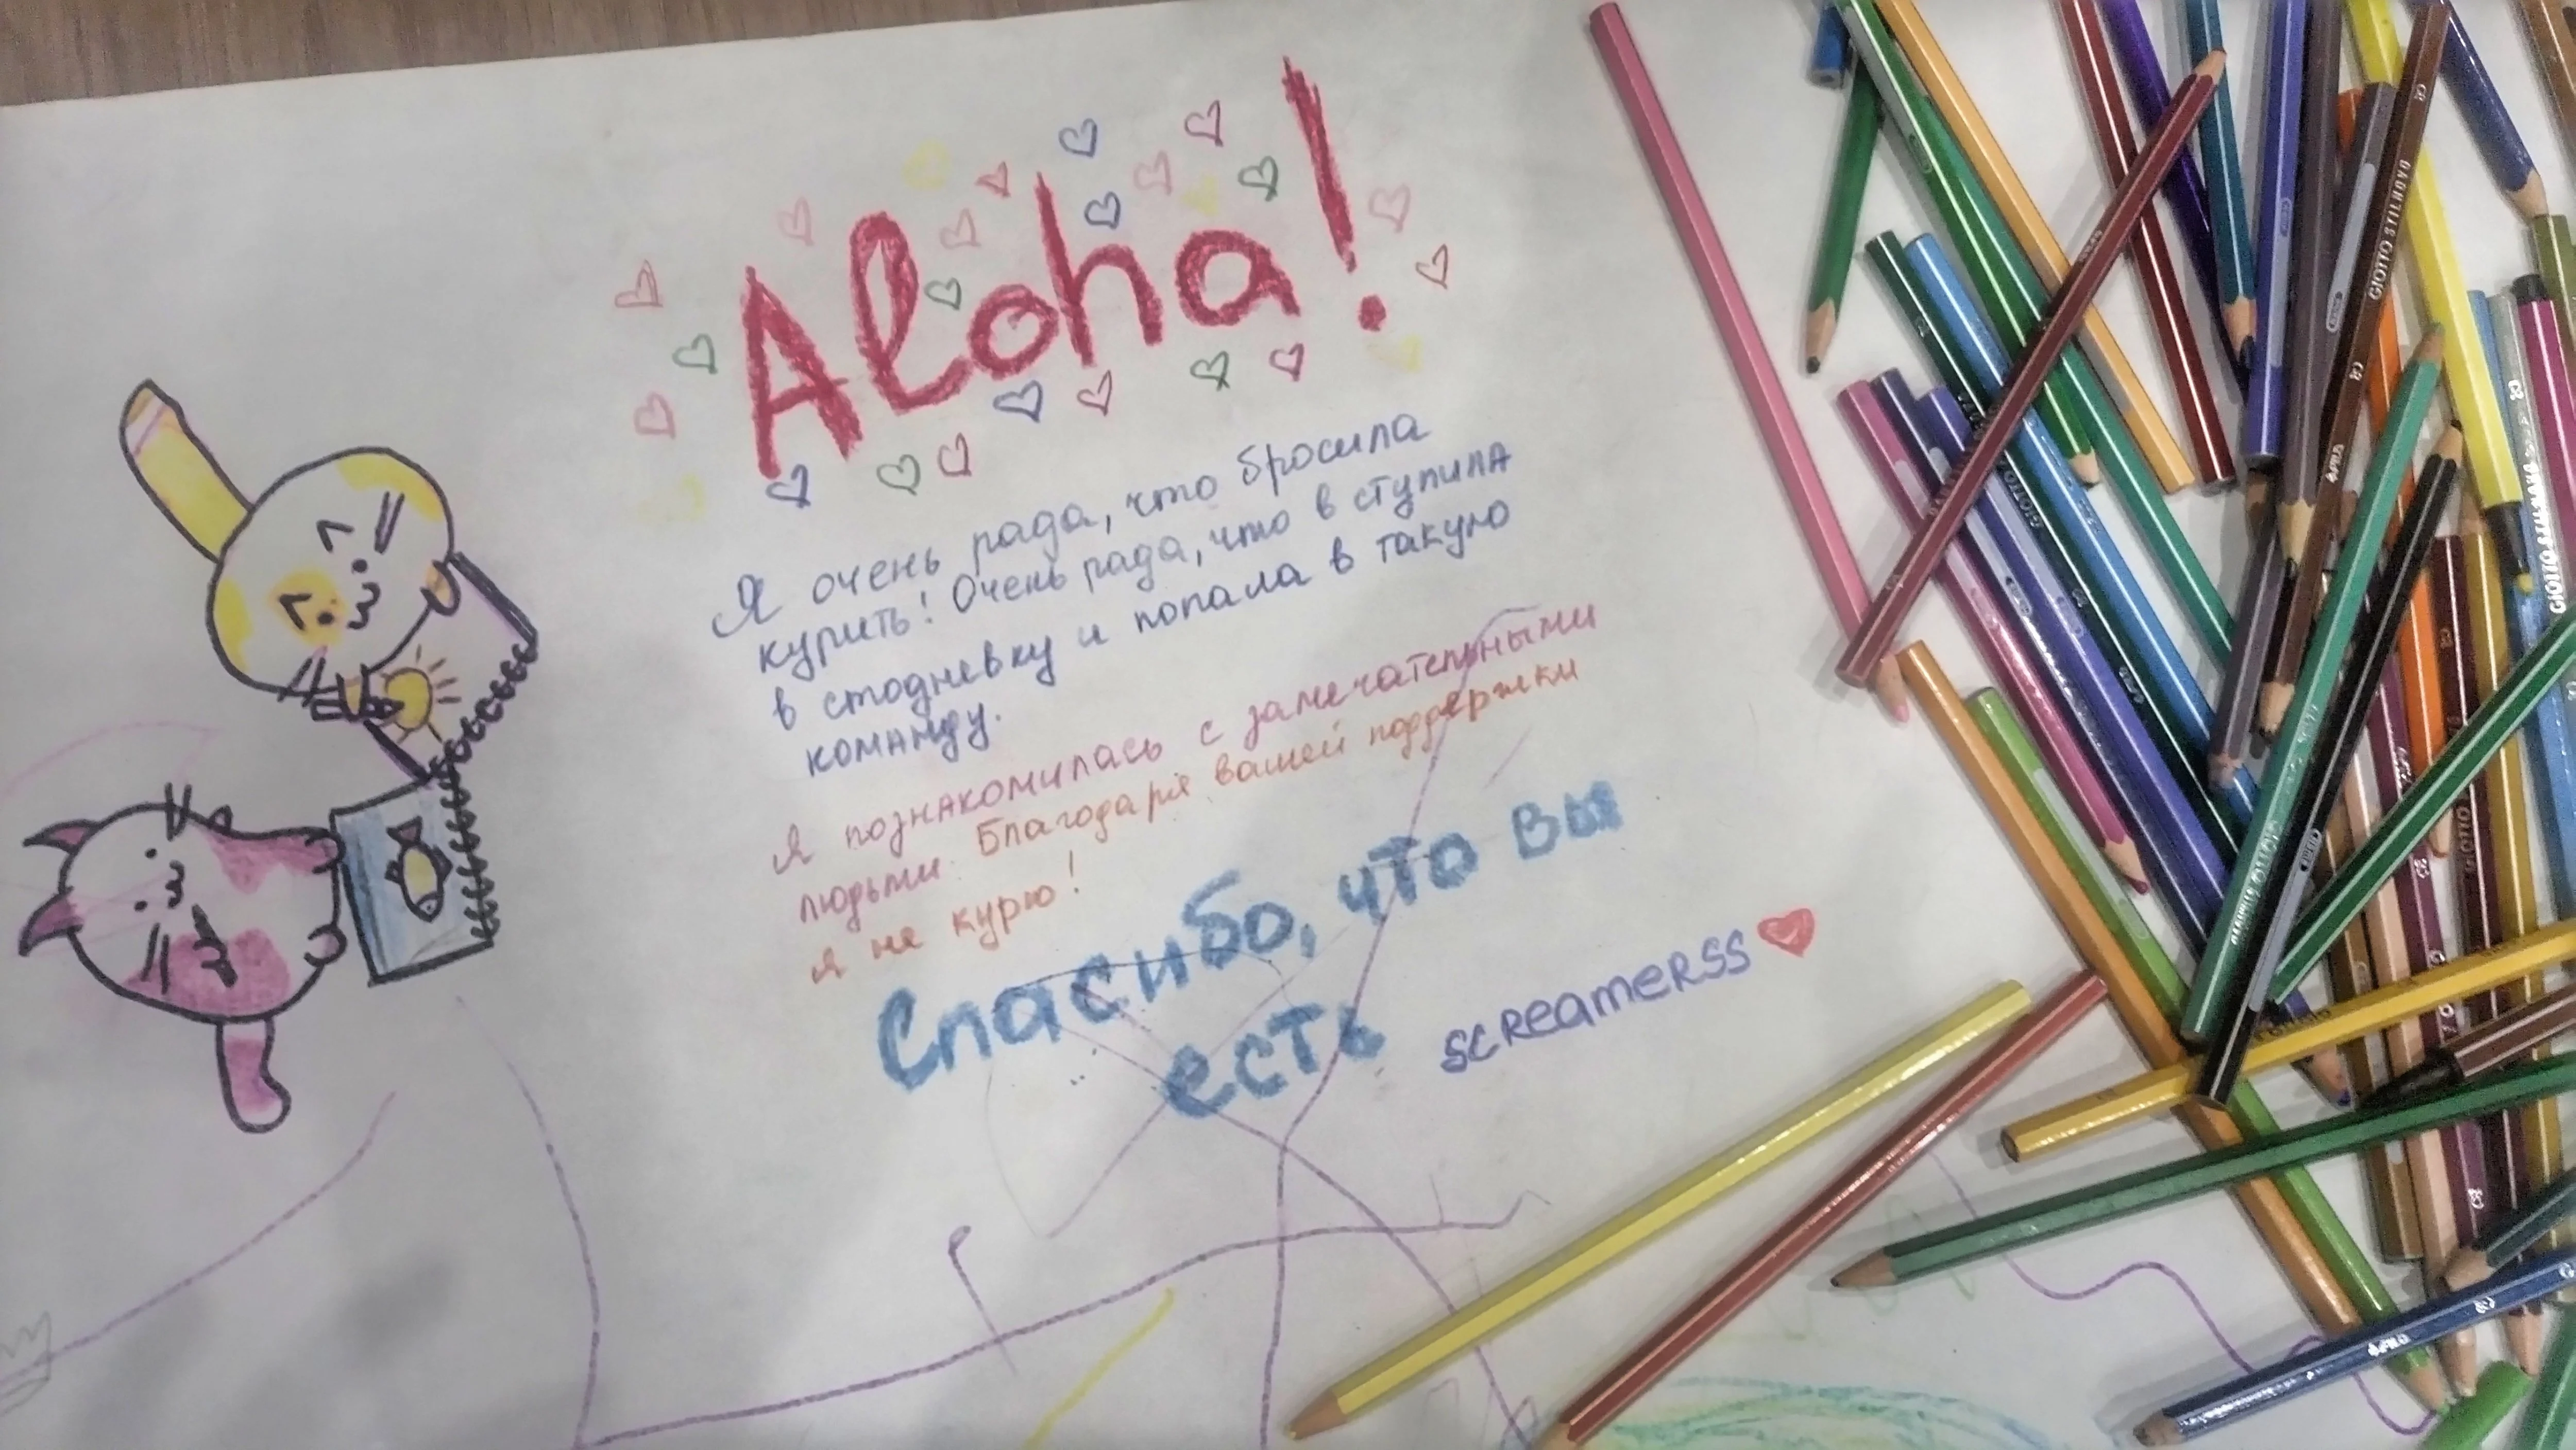 Aloha!
Я очень рада, что бросила
курить! Очень рада, что в ступила
в стодневку и попала в такую
команду.
Я познакомилась с замечательными
людьми. Благодаря вашей поддержки
я не курю!
Спасибо, что вы
есть
SCREAMERSS
GIOTTO STILNOVO
GIOTTO
GIOTTO